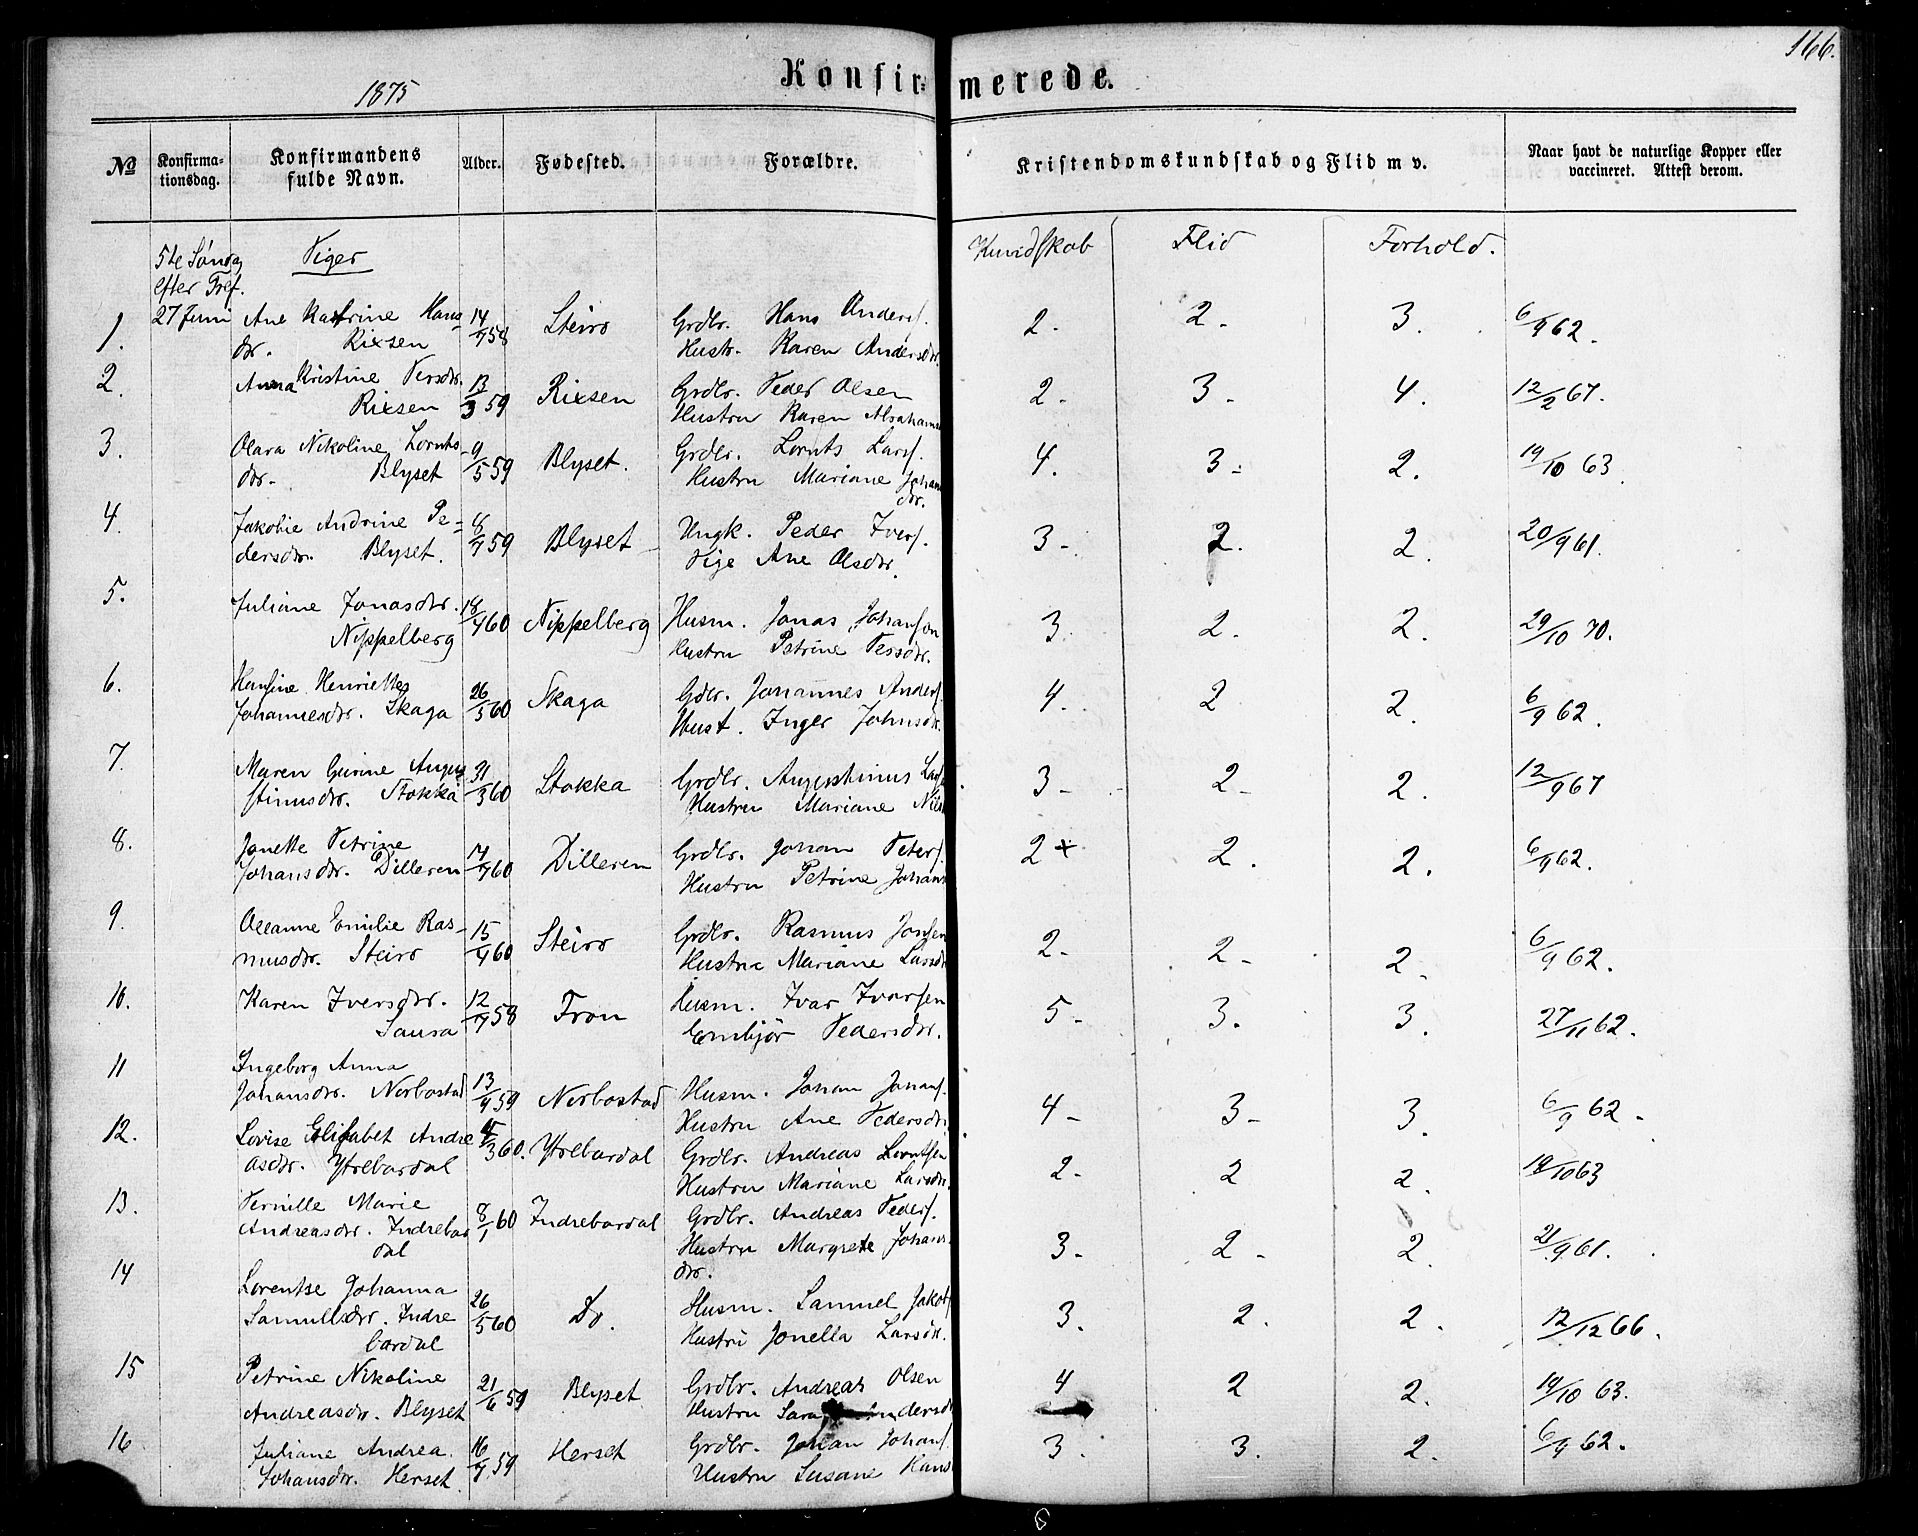 166.
1875
Konfir- merede.
No
Konfirma-
tionsdag.
Konfirmandens
fulde Navn.
Alder.
Fødested.
Forældre.
Kristendomskundskab og Flid m v.
Naar havt de naturlige Kopper eller
vaccineret. Attest deom.
Kundskab Flid Forhold.
5te Søndag Piger
efter Tref.
1. 27 Juni Ane Katrine Hans 14 Steiro Grdbr. Hans Anders. 2. 2. 3. 6/9 62.
dr. Rixsen 58 Hustr. Karen Andersdr.
2. Anna Kristine Persdr. 13/3 59 Rixsen Grdbr. Peder Olsen 2. 3. 4. 12/2 67.
Rixsen Hustru Karen Abraham
3. Olara Nikoline Lornts 9/5 59 Blyset. Grdbr. Lornts Lars. 4. 3. 2. 19/10 63.
dr. Blyset Hustru Mariane Johan
dr.
4. Jakobie Andrine Pe- 8 59 Blyset Ungk. Peder Ivers. 3. 2. 2. 20/9 61.
dersdr. Blyset. Pige Ane Olsdr.
5. Juliane Jonasdr. 18 60 Nippelberg Husm. Jonas Johansen 3. 2. 2. 29/10 70.
Nippelberg Hustru Petrine Persdr.
6. Hansine Henriette 26/5 60 Skaga Gdbr. Johannes Anders. 4. 2 2. 6/9 62.
Johannesdr. Skaga Hust. Inger Johnsdr.
7. Maren Gurine Augus 31/3 60 Stokka Grdbr. Augustinus Lars 3. 2. 2. 12/9 67
stinusdr. Stokka Hustru Mariane Nils
8. Janette Petrine 60 Dilleren Grdbr. Johan Peters. 2+ 2. 2. 6/9 62.
Johansdr. Dilleren Hustru Petrine Johans
9. Oleanne Emilie Ras- 15 60 Steiro Grdbr. Rasmus Jonsen 2. 2. 2. 6/9 62.
musdr. Steiro Hustru Mariane Larsdr
10. Karen Iversdr. 12 58 Fron Husm. Ivar Ivarsen 5. 3. 3. 27/11 62.
Sausa Embjør Pedersdr.
11 Ingeborg Anna
Johansdr. Norbostad 13 59 Norbostad Husm. Johan Johans. 4. 3. 3. 6/9 62.
Hustru Ane Pedersdr.
12. Lovise Elisabet Andre 60. Ytrebardal Grdbr. Andreas Lorntsen 2. 2 2. 19/10 63
asdr. Ytrebardal Hustru Mariane Larsdr.
13. Pernille Marie 8/1 60 Indrebardal Grdbr. Andreas Peders. 3. 2. 2. 21/9 61.
Andreasdr. Indrebar Hustru Margrete Johans
dal dr.
14 Lorentse Johanna
Samuelsdr. Indre 26/5 60 Do. Husm. Samuel Jakobs 3. 2. 2. 12/12 66.
bardal Hustru Jonella Larsdr.
15 Petrine Nikoline 21 59 Blyset Grdbr. Andreas Olsen 4 2 2. 19/10 63.
Andreasdr. Blyset Hustru Sara Andersdr
16 Juliane Andrea 16 59 Herset Grdbr. Johan Johans. 3. 3. 2. 6/9 62.
Johansdr. Herset. Hustru Susane Hans